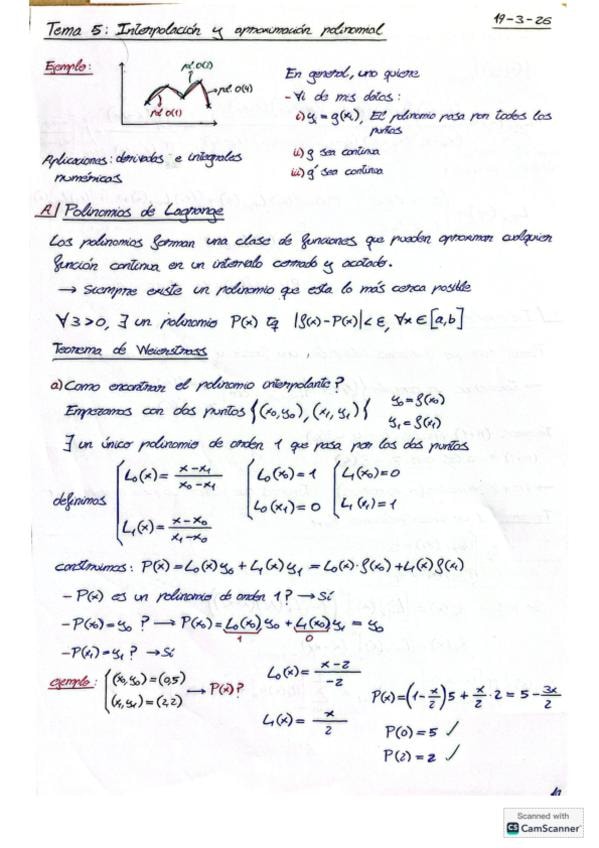 19-3-26
Tema 5: Interpolación y aproximación polinomial
Ejemplo:
pol O(2)
pol O(4)
pol O(1)
En general, uno quiere
- ∀i de mis datos:
i) yi = f(xi), El polinomio pasa por todos los puntos
ii) f sea continua
iii) f' sea continua
Aplicaciones: derivadas e integrales
numéricas
A/ Polinomios de Lagrange
Los polinomios forman una clase de funciones que pueden aproximar cualquier
función continua en un intervalo cerrado y acotado.
→ Siempre existe un polinomio que esta lo más cerca posible
∀ 3>0, ∃ un polinomio P(x) tq |f(x)-P(x)|<ε, ∀x∈[a,b]
Teorema de Weierstrass
a) Como encontrar el polinomio interpolante?
Empezamos con dos puntos {(x0,y0), (x1,y1)} y0=f(x0)
y1=f(x1)
∃ un único polinomio de orden 1 que pasa por los dos puntos
definimos { L0(x) = (x-x1)/(x0-x1) { L0(x0)=1 { L1(x0)=0
L1(x) = (x-x0)/(x1-x0) L0(x1)=0 L1(x1)=1
construimos: P(x)=L0(x)y0+L1(x)y1 = L0(x)·f(x0)+L1(x)f(x1)
- P(x) es un polinomio de orden 1? → Sí
- P(x0)=y0 ? → P(x0)=L0(x0)y0+L1(x0)y1 = y0
1 0
- P(x1)=y1 ? → Sí
ejemplo: { (x0,y0)=(0,5) → P(x)?
(x1,y1)=(2,2)
L0(x) = (x-2)/-2
L1(x) = x/2
P(x)=(1-x/2)5+x/2·2 = 5-3x/2
P(0)=5 ✓
P(2)=2 ✓
Scanned with
CS CamScanner